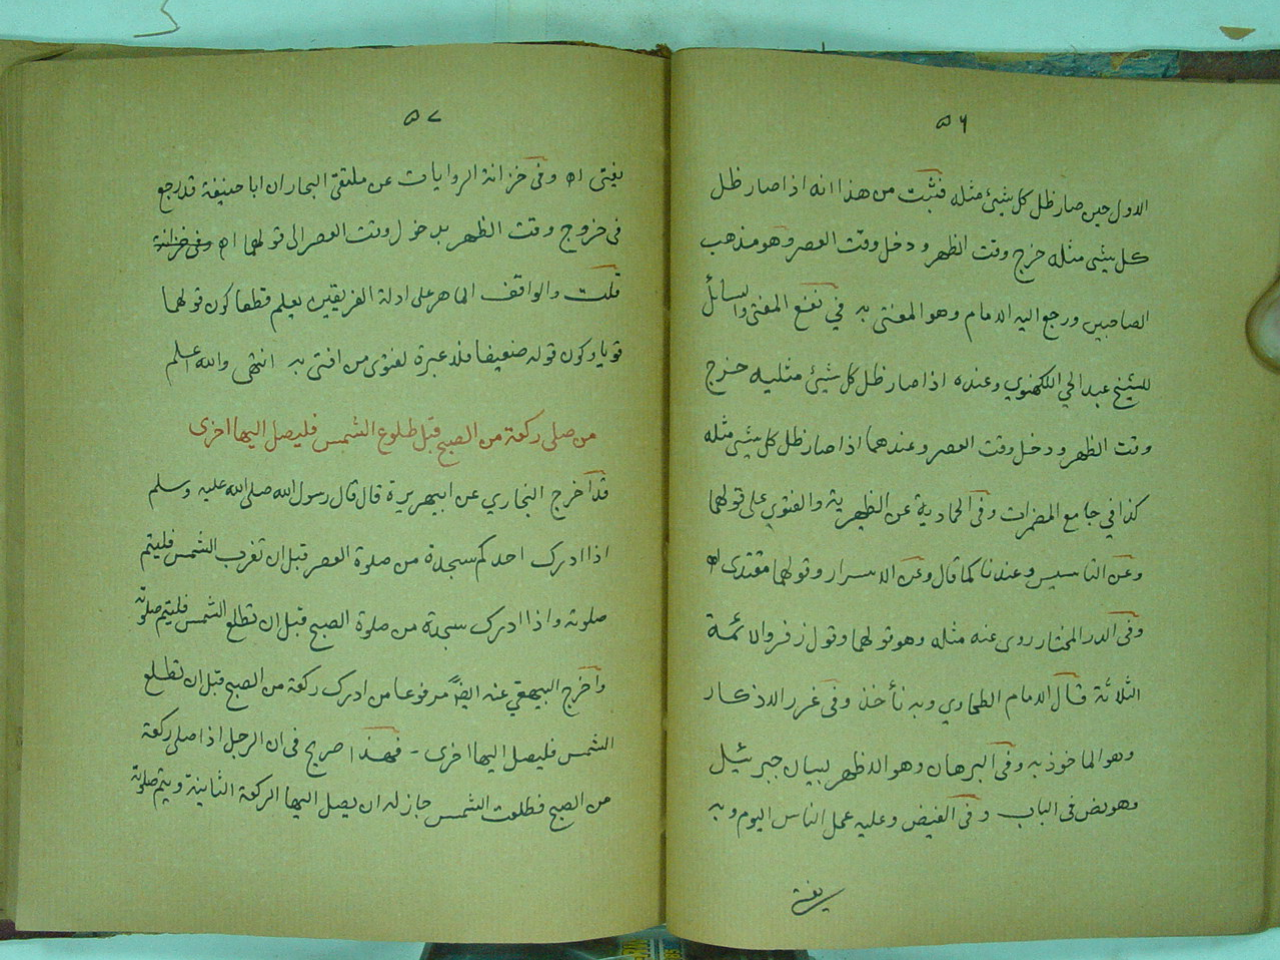 ۵۶
الاول حين صار ظل كل شيئ مثله فثبت من هذا انه اذا صار ظل
كل شيئ مثله خرج وقت الظهر و دخل وقت العصر وهو مذهب
الصاحبين ورجع اليه الامام وهو المفتى به في نفع المفتى والسائل
للشيخ عبد الحي اللكهنوي وعنده اذا صار ظل كل شيئ مثليه خرج
وقت الظهر و دخل وقت العصر وعندهما اذا صار ظل كل شيئ مثله
كذا في جامع المضمرات وفى الحمادية عن الظهيرية والفتوي على قولهما
وعن التاسيس وعندنا كما قال وعن الاسرار وقولهما مقتدى اه
وفى الدر المختار روى عنه مثله وهو قولهما وقول زفر والائمة
الثلاثة قال الامام الطحاوي وبه نأخذ وفى غرر الاذكار
وهو الماخوذ به وفى البرهان وهو الاظهر لبيان جبرئيل
وهو نص فى الباب وفى الفيض وعليه عمل الناس اليوم وبه
يفتى
۵۷
يفتى اه وفى خزانة الروايات عن ملتقى البحار ان ابا حنيفة قد رجع
فى خروج وقت الظهر بدخول وقت العصر الى قولهما اه وفى خزانة
قلت والواقف الماهر على ادلة الفريقين يعلم قطعا كون قولهما
قويا وكون قوله ضعيفا فلا عبرة لفتوى من افتى به انتهى والله اعلم
من صلى ركعة من الصبح قبل طلوع الشمس فليصل اليها اخرى
قد اخرج البخاري عن ابيهريرة قال قال رسول الله صلى الله عليه وسلم
اذا ادرك احدكم سجدة من صلوة العصر قبل ان تغرب الشمس فليتم
صلوته واذا ادرك سجدة من صلوة الصبح قبل ان تطلع الشمس فليتم صلوته
واخرج البيهقي عنه ايضاً مرفوعا من ادرك ركعة من الصبح قبل ان تطلع
الشمس فليصل اليها اخرى - فهذا صريح فى ان الرجل اذا صلى ركعة
من الصبح فطلعت الشمس جاز له ان يصل اليها الركعة الثانية ويتم صلوته